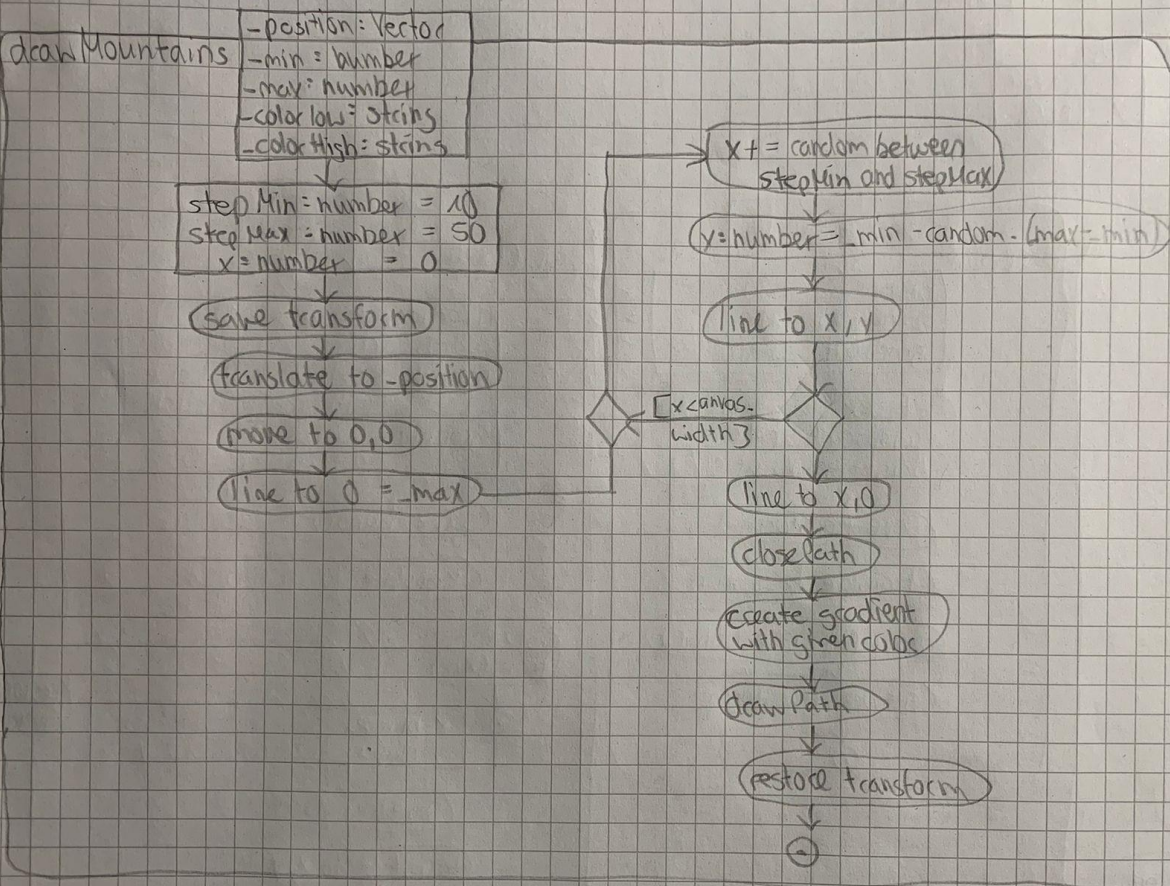 drawMountains
_position: Vector
_min: number
_max: number
_colorlow: string
_colorHigh: string
stepMin: number = 10
stepMax: number = 50
x: number = 0
save transform
translate to _position
move to 0,0
line to 0 = _max
x += random between
stepMin and stepMax
y: number = _min - random. (max - min)
line to x, y
[x<canvas.
width]
line to x,0
closePath
create gradient
with given color
drawPath
restore transform